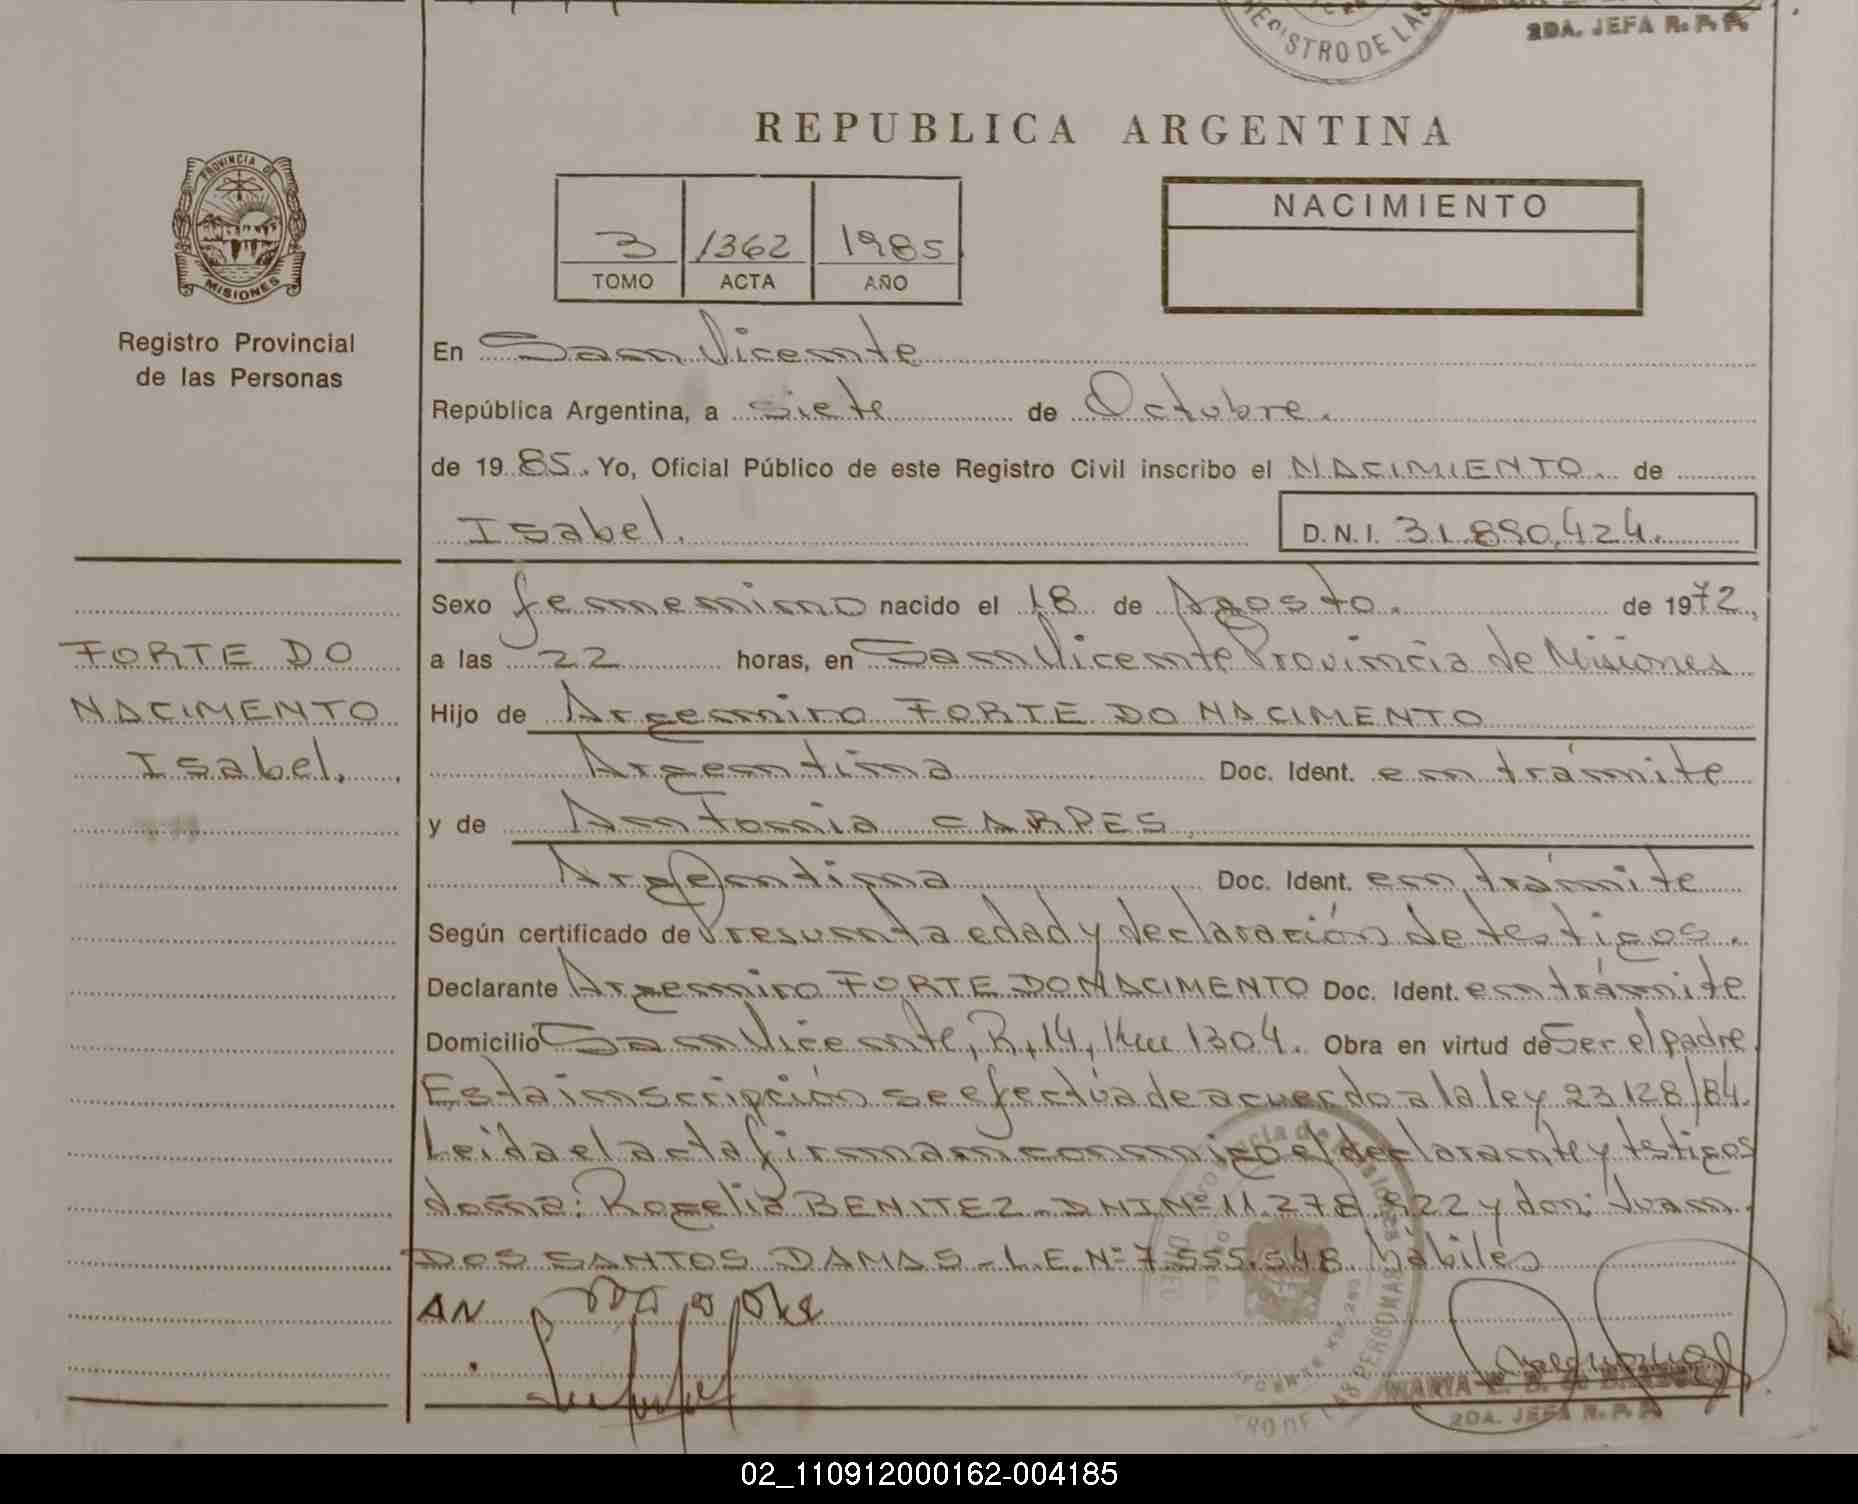 REGISTRO DE LAS
2DA. JEFA R. P. P.
REPUBLICA ARGENTINA
PROVINCIA DE
MISIONES
Registro Provincial
de las Personas
3 1362 1985
TOMO ACTA AÑO
NACIMIENTO
En San Vicente
República Argentina, a siete de Octubre.
de 1985. Yo, Oficial Público de este Registro Civil inscribo el NACIMIENTO de
Isabel. D.N.I. 31.890.424.
FORTE DO
NACIMENTO
Isabel.
Sexo femenino nacido el 18 de Agosto. de 1972,
a las 22 horas, en San Vicente Provincia de Misiones
Hijo de Argemiro FORTE DO NACIMENTO
Argentina Doc. Ident. en trámite
y de Antonia CARPES
Argentina Doc. Ident. en trámite
Según certificado de Presunta edad y declaración de testigos.
Declarante Argemiro FORTE DO NACIMENTO Doc. Ident. en trámite
Domicilio San Vicente, R. 14, Km 1304. Obra en virtud de Ser el padre.
Esta inscripción se efectúa de acuerdo a la ley 23.128/84.
Leida el acta firman conmigo el declarante y testigos
doña: Rogelia BENITEZ - DNI Nº 11.278.922 y don: Juan
DOS SANTOS DAMAS - L.E. Nº 7.555.548. hábiles
AN
2DA. JEFA R. P. P.
02_110912000162-004185